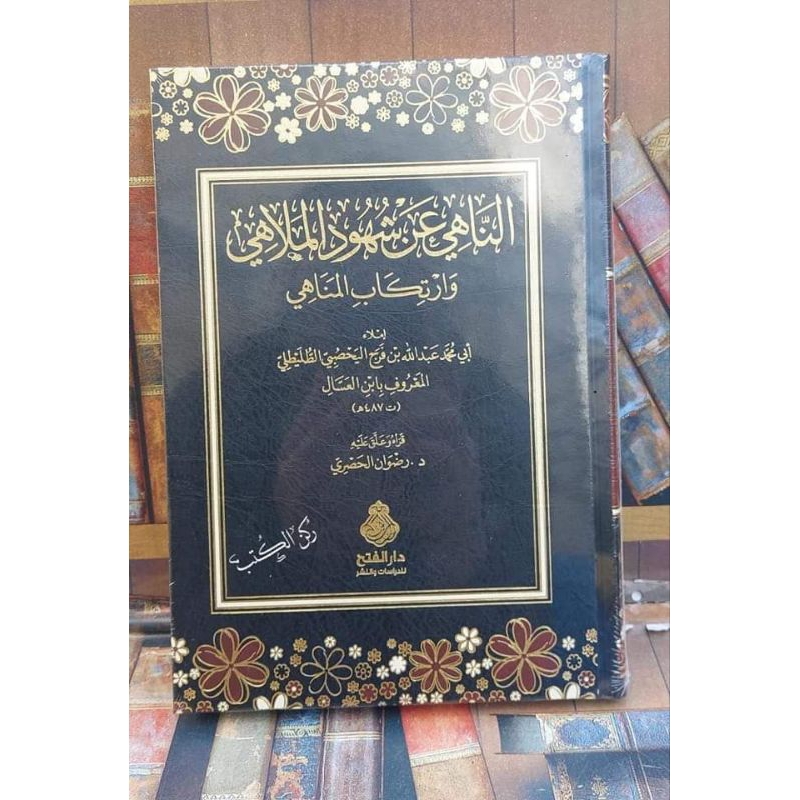 النَّاهِي عَنْ شُهُودِ المَلَاهِي
وَارْتِكَابِ المَنَاهِي
إملاء
أبي مُحمَّد عَبْدِ الله بْنِ فَرَجٍ اليَحْصُبِيِّ الطُّلَيْطِلِيّ
المَعْرُوفِ بِابْنِ العَسَّالِ
(ت ٤٨٧هـ)
قَرَأَهُ وَعَلَّقَ عَلَيْهِ
د. رضْوَان الحَصْرِي
دار الفتح
للدراسات والنشر
ركن الكتب